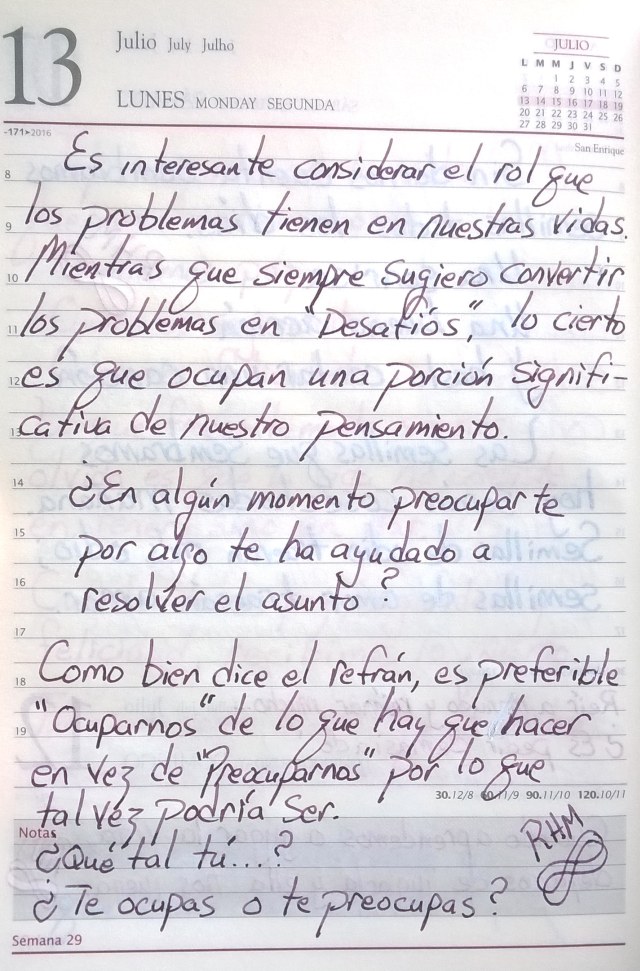 13
Julio July Julho
LUNES MONDAY SEGUNDA
JULIO
L M M J V S D
1 2 3 4 5
6 7 8 9 10 11 12
13 14 15 16 17 18 19
20 21 22 23 24 25 26
27 28 29 30 31
-171▸2016
San Enrique
8 Es interesante considerar el rol que
9 los problemas tienen en nuestras vidas.
10 Mientras que siempre sugiero convertir
11 los problemas en "Desafiós", lo cierto
12 es que ocupan una porción signifi-
13 cativa de nuestro pensamiento.
14 ¿En algún momento preocuparte
15 por algo te ha ayudado a
16 resolver el asunto?
17
18 Como bien dice el refrán, es preferible
19 "Ocuparnos" de lo que hay que hacer
en vez de "Preocuparnos" por lo que
30.12/8 60.11/9 90.11/10 120.10/11
tal vez podría ser.
Notas
¿Qué tal tú....?
RHM
¿Te ocupas o te preocupas?
Semana 29